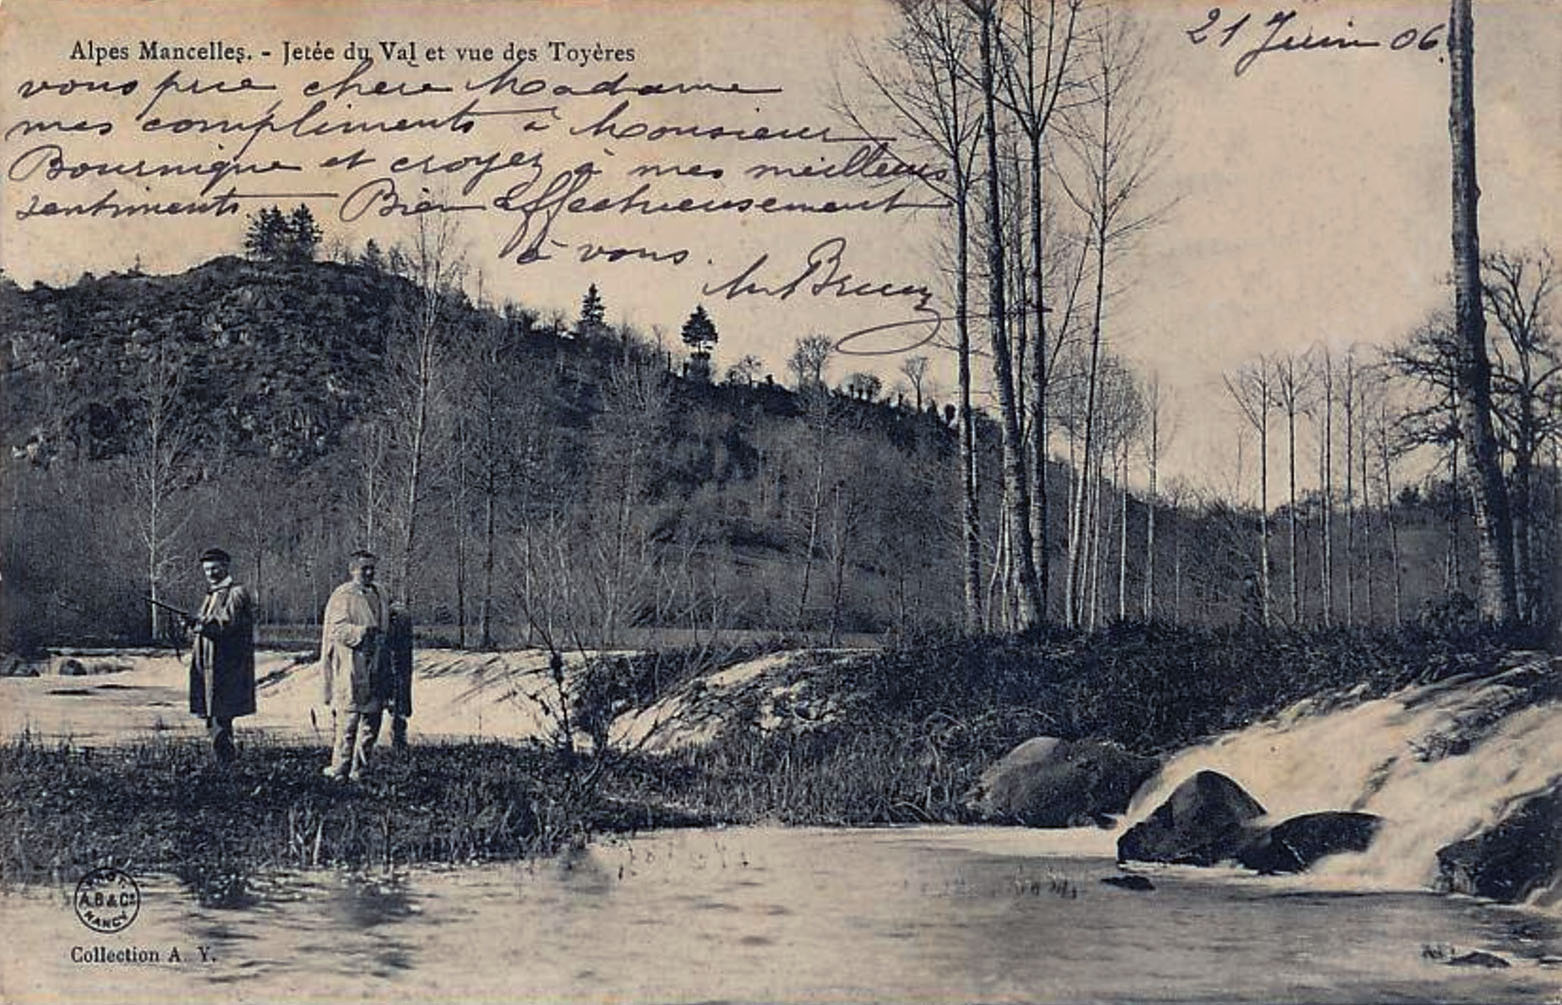 Alpes Mancelles. - Jetée du Val et vue des Toyères
21 Juin 06.
vous prie chere Madame
mes compliments à Monsieur
Bournigue et croyez à mes meilleurs
sentiments — Bien affectueusement
à vous.
PHOT
A.B & Cie
NANCY
Collection A. Y.